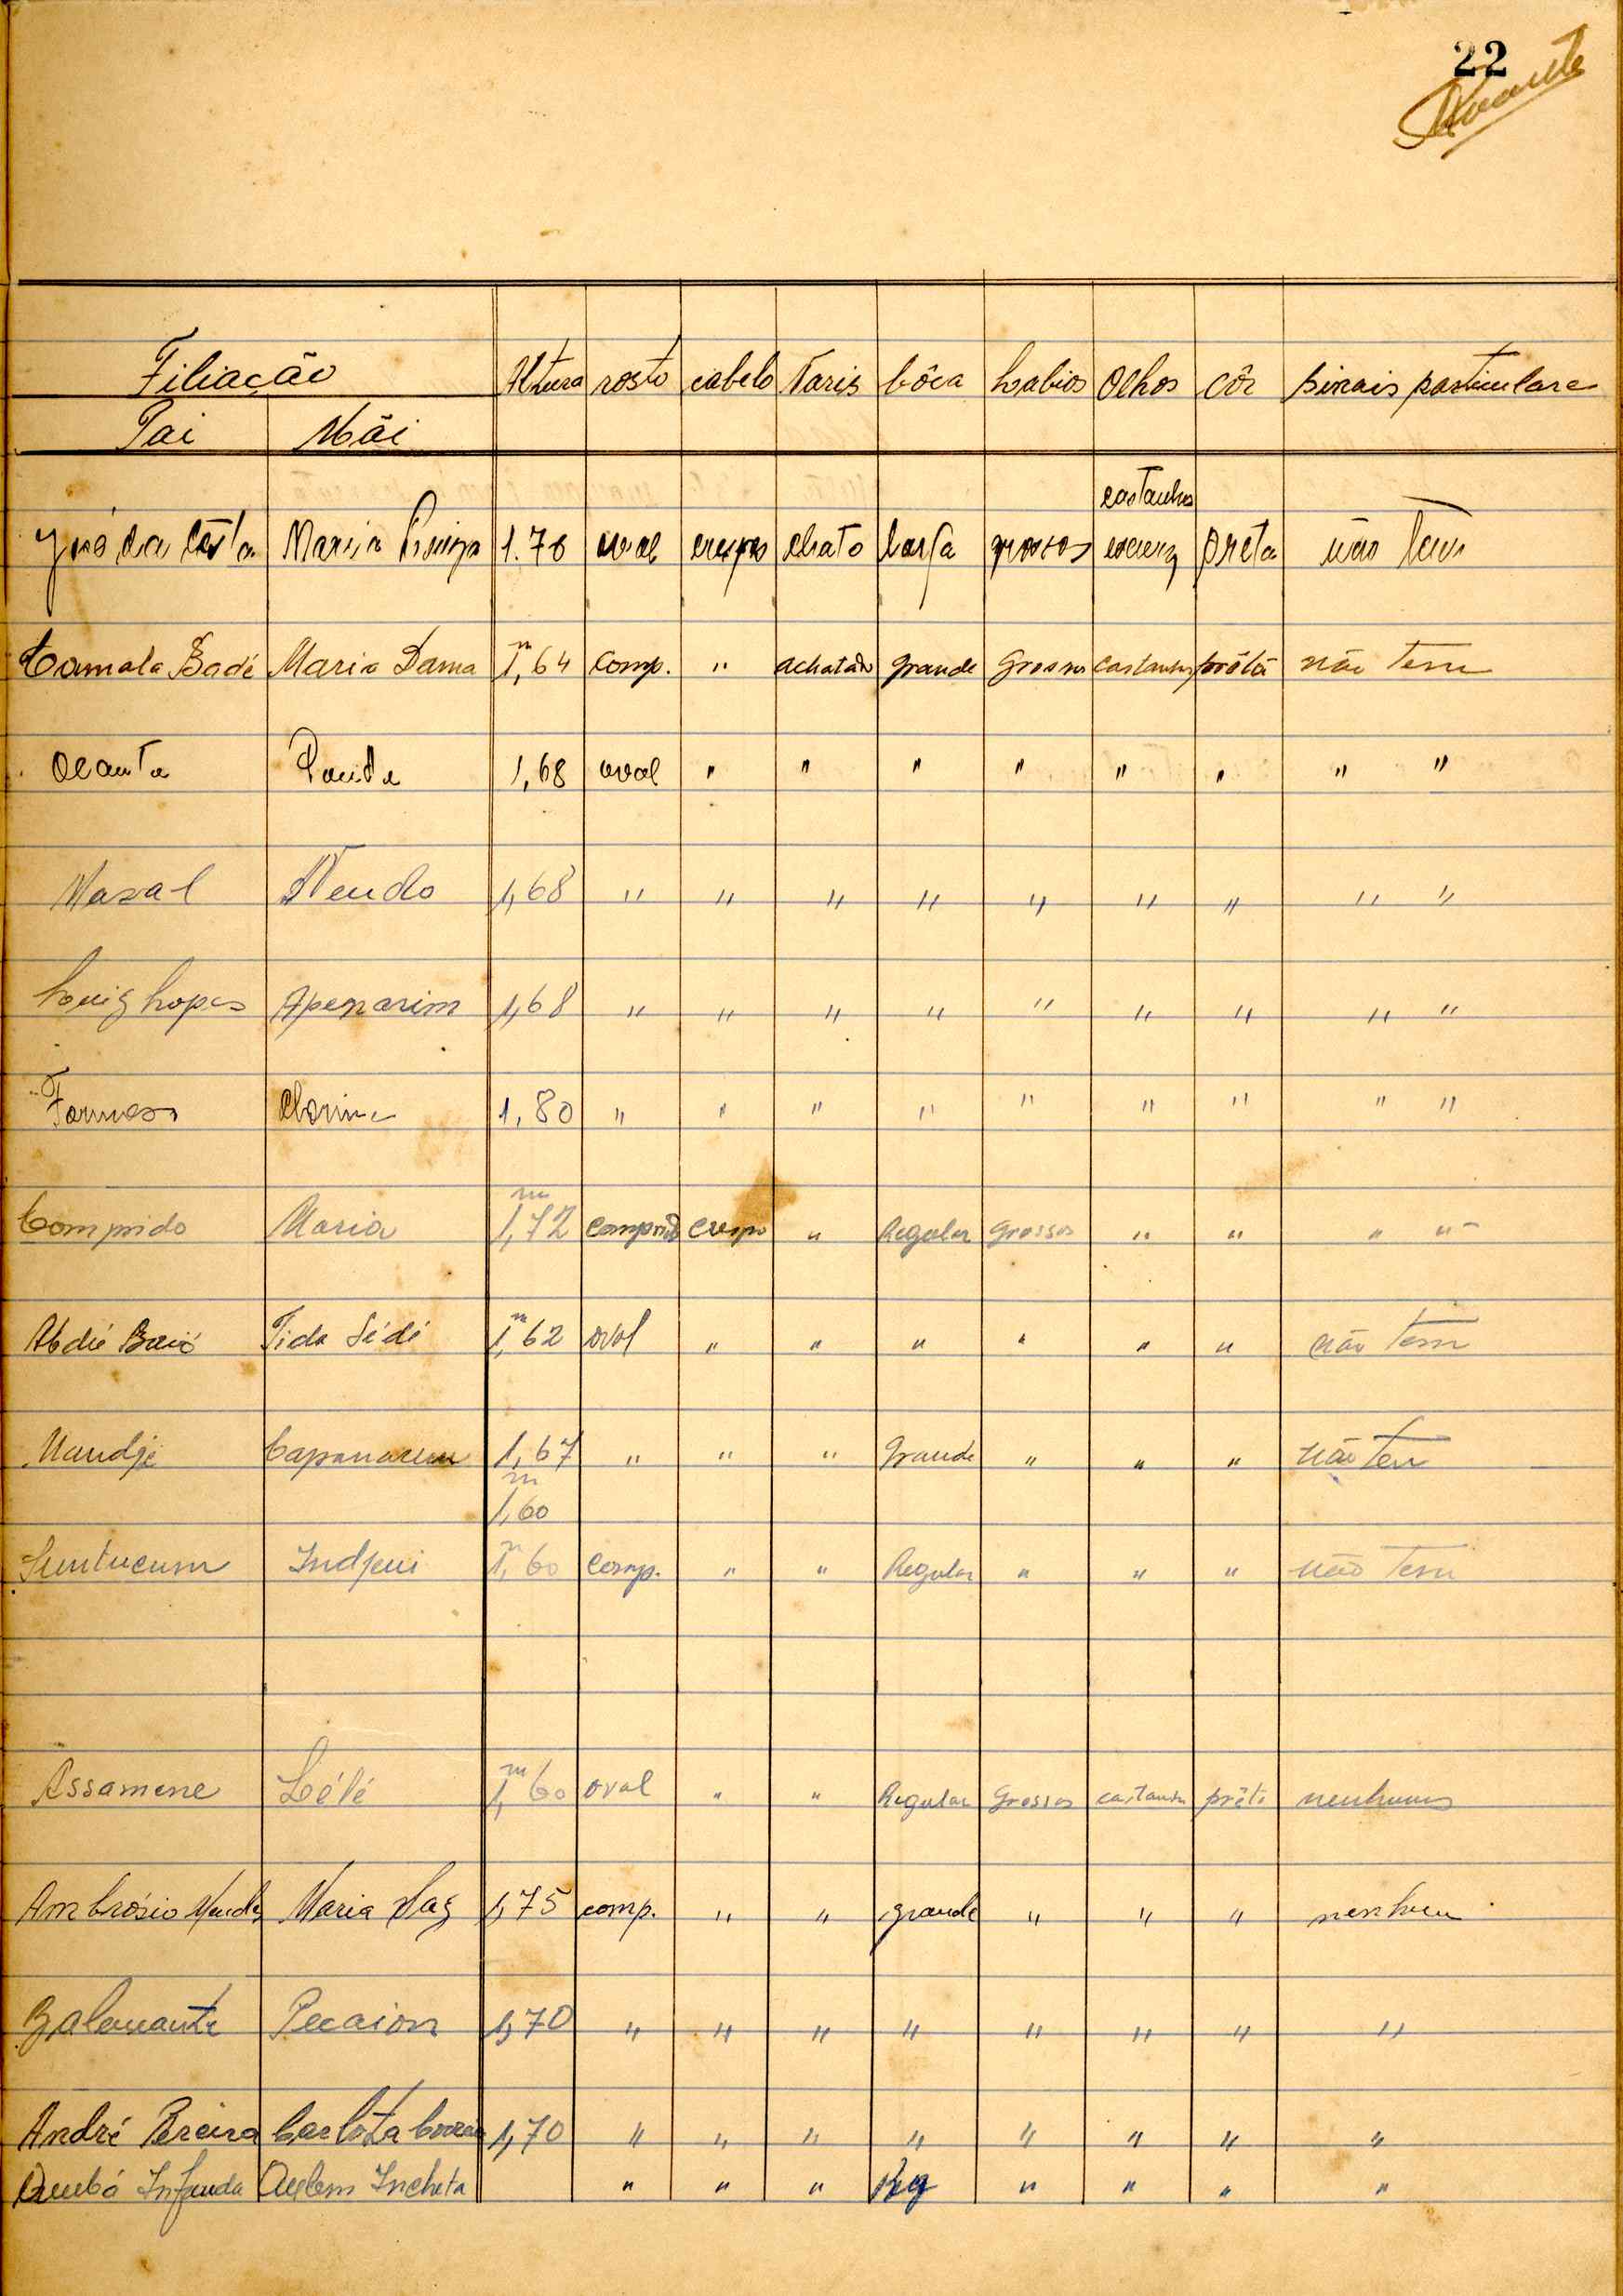 22
Filiação Altura rosto cabelo Naris bôca Labios Olhos Côr sinais particulare
Pai Mãi
castanhos
José da Costa Maria 1.70 oval crespo chato larga grossos escuros preta não tem
Camala Badé Maria Dama 1,64 m comp. " achatado grande Grossos castanhos prêta não tem
Ocanta 1,68 oval " " " " " " " "
Maxal Nendo 1,68 " " " " " " " " "
Luiz Lopes Apenarim 1,68 " " " " " " " " "
1,80 " " " " " " " " "
Comprido Maria 1,72 m comprido crespo " Regular Grossos " " " "
Abdú Baió Tida Sédi 1,62 m oval " " " " " " não tem
Mandjé Capanarum 1,67 " " " Grande " " " não tem
m
1,60
Suntucum Indjui 1,60 m comp. " " Regular " " " não tem
Assamene Lélé 1,60 m oval " " Regular Grossos castanhos prêta nenhuns
Ambrósio Mendes Maria Vaz 1,75 comp. " " grande " " " nenhum
Balemante Pecaion 1,70 " " " " " " " "
André Pereira Carlota Correia 1,70 " " " " " " " "
Infunda Incheta " " " Reg " " " "